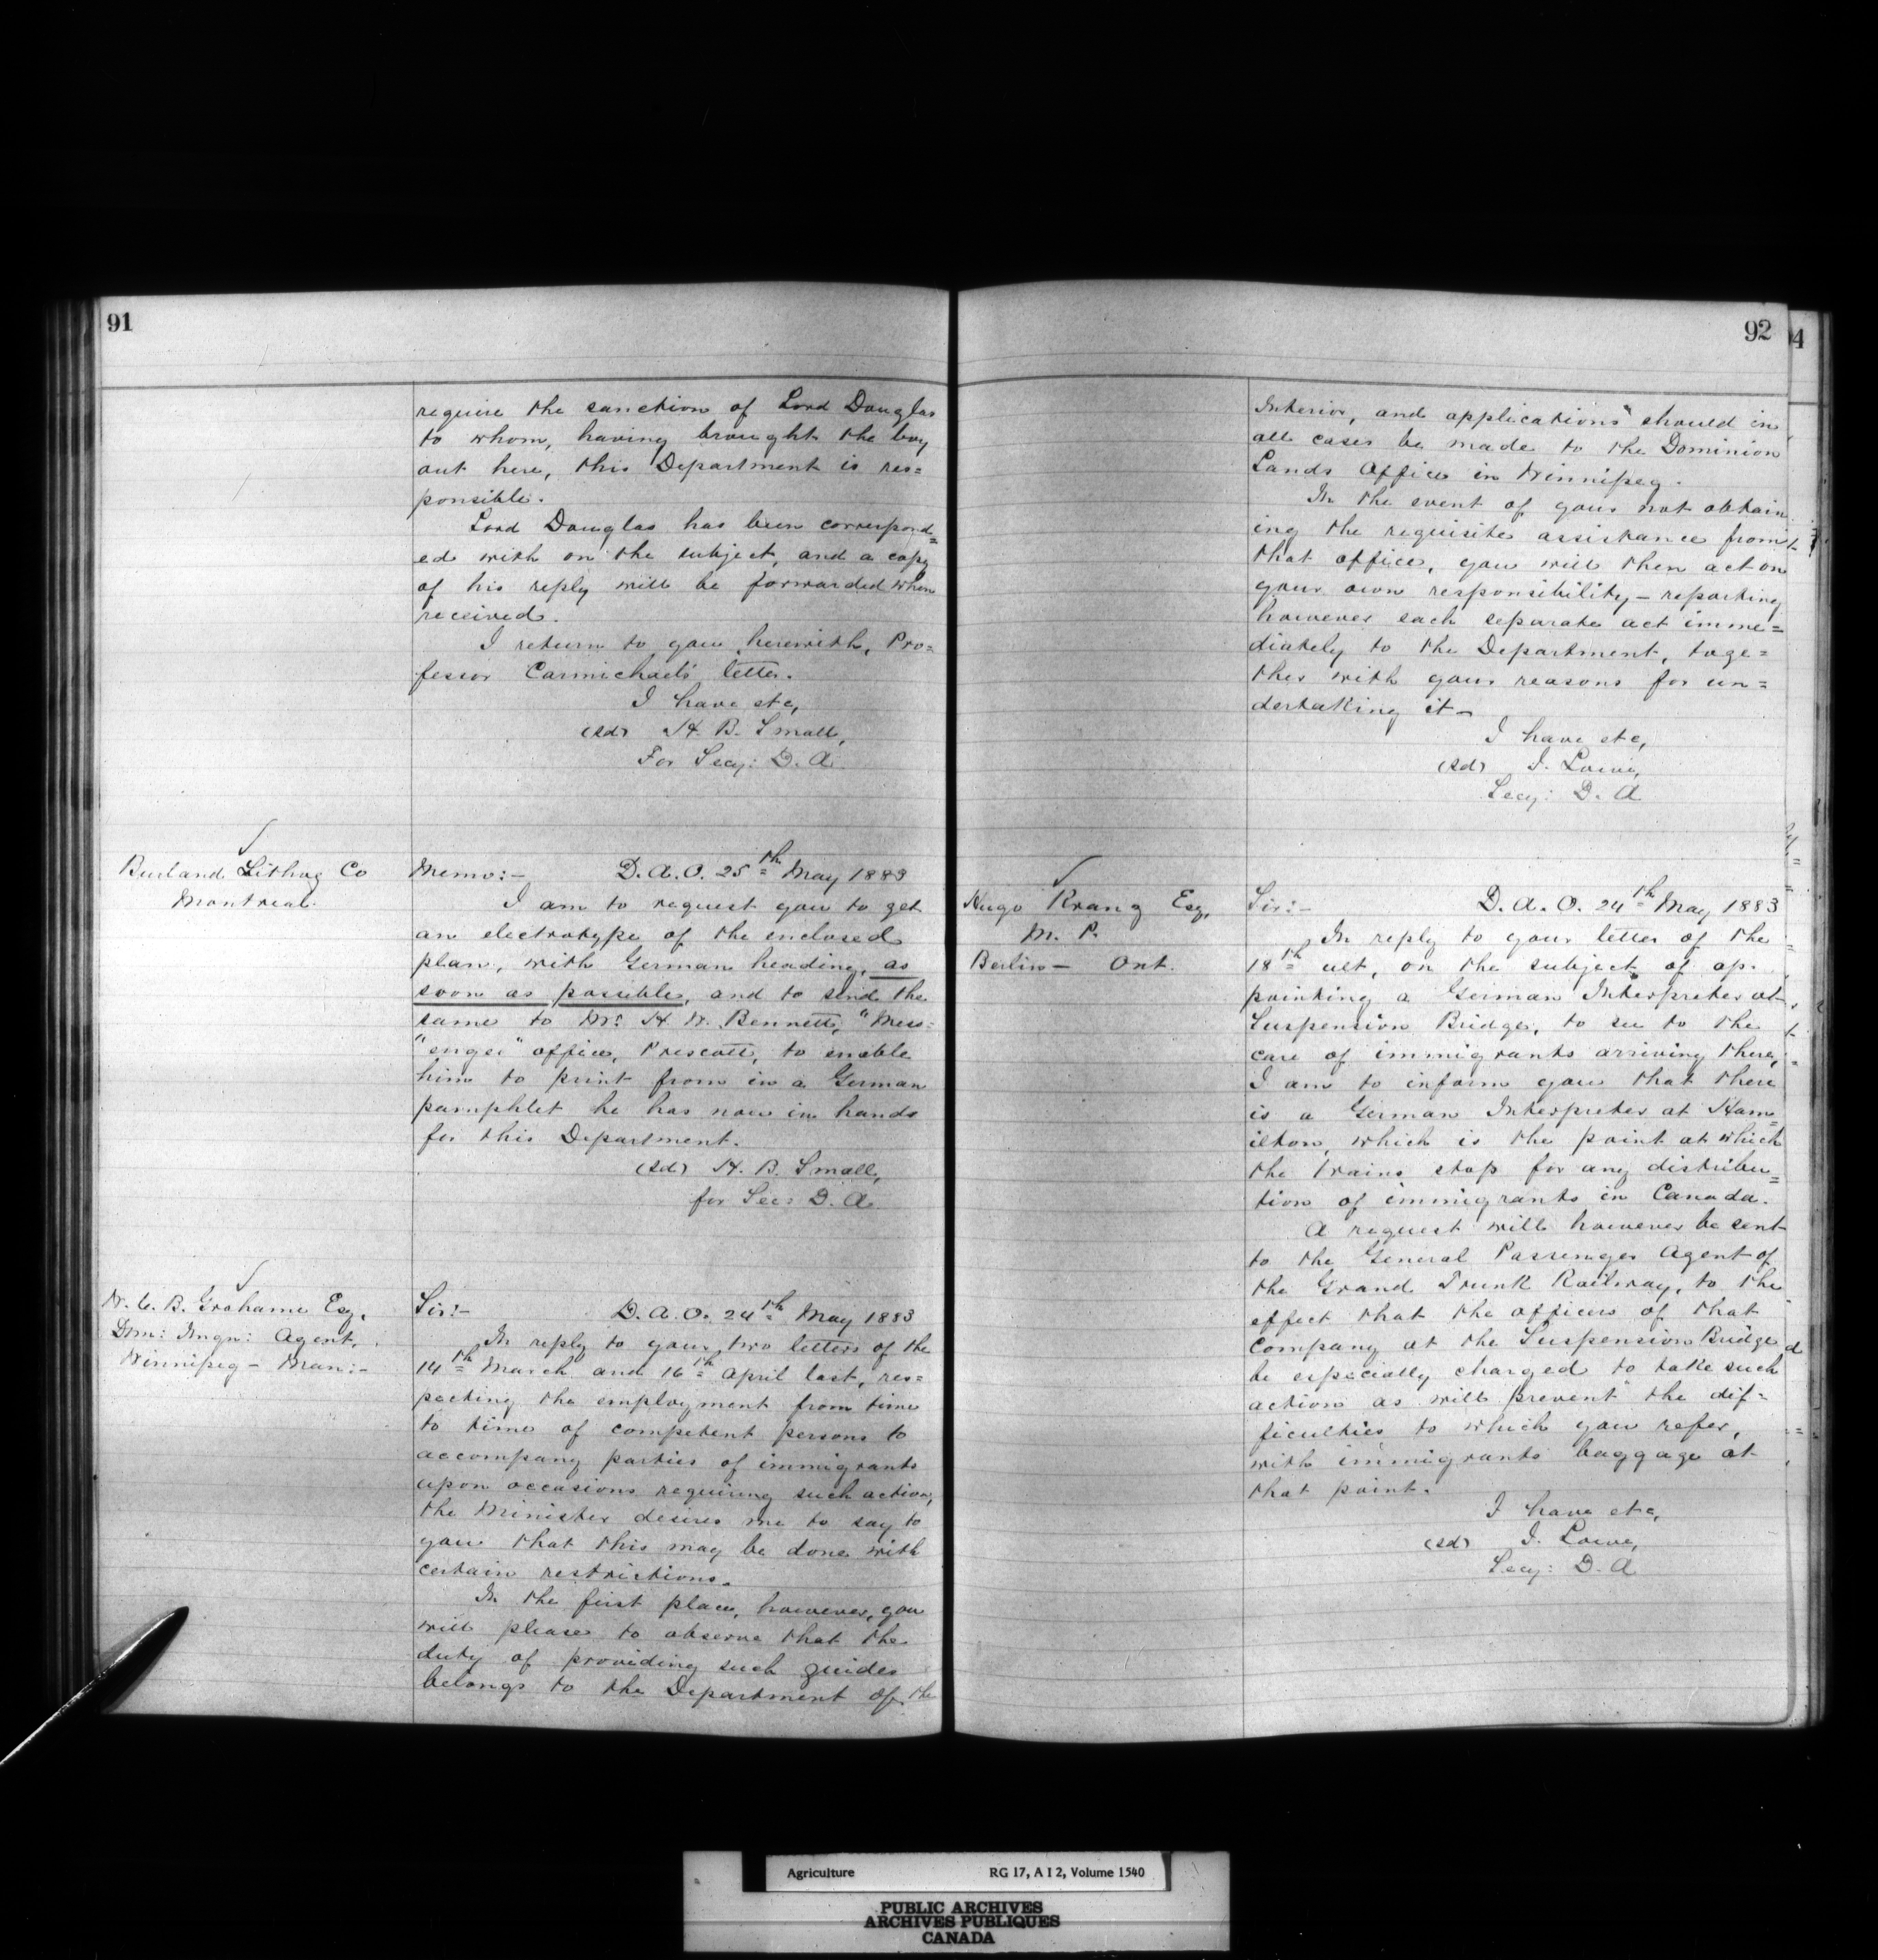 91
require the sanction of Lord Douglas
to whom, having brought the boy
out here, this Department is res=
ponsible.
Lord Douglas has been correspond=
ed with on the subject, and a copy
of his reply will be forwarded when
received.
I return to you herewith, Pro=
fessor Carmichael's letter.
I have etc,
(sd) H. B. Small,
For Secy: D. A.
Burland Lithog Co
Montreal.
Memo:- D. A. O. 25th May 1883
I am to request you to get
an electrotype of the enclosed
plan, with German heading, as
soon as possible, and to send the
same to Mr. H. W. Bennett, "Mess=
"enger" office, Prescott, to enable
him to print from in a German
pamphlet he has now in hands
for this Department.
(sd) H. B. Small,
for Sec: D. A.
W. C. B. Grahame Esq,
Dom: Imgn: Agent,
Winnipeg - Man:-
Sir:- D. A. O. 24th May 1883
In reply to your two letters of the
14th March and 16th April last, res=
pecting the employment from time
to time of competent persons to
accompany parties of immigrants
upon occasions requiring such action,
the Minister desires me to say to
you that this may be done with
certain restrictions.
In the first place, however, you
will please to observe that the
duty of providing such guides
belongs to the Department of the
92
Interior, and applications should in
all cases be made to the Dominion
Lands Office in Winnipeg.
In the event of your not obtain
ing the requisite assistance from
that office, you will then act on
your own responsibility - reporting
however each separate act imme=
diately to the Department, toge=
ther with your reasons for un=
dertaking it -
I have etc,
(sd) J. Lowe,
Secy: D. A
Hugo Kranz Esq,
M. P.
Berlin - Ont.
Sir:- D. A. O. 24th May 1883
In reply to your letter of the
18th ult, on the subject of ap-
pointing a German Interpreter at
Suspension Bridge, to see to the
care of immigrants arriving there,
I am to inform you that there
is a German Interpreter at Ham=
ilton, which is the point at which
the trains stop for any distribu=
tion of immigrants in Canada.
A request will however be sent
to the General Passenger Agent of
the Grand Trunk Railway, to the
effect that the officers of that
Company at the Suspension Bridge
be especially charged to take such
action as will prevent the dif=
ficulties to which you refer,
with immigrants baggage at
that point.
I have etc,
(sd) J. Lowe,
Secy: D. A
4
Agriculture RG 17, A I 2, Volume 1540
PUBLIC ARCHIVES
ARCHIVES PUBLIQUES
CANADA